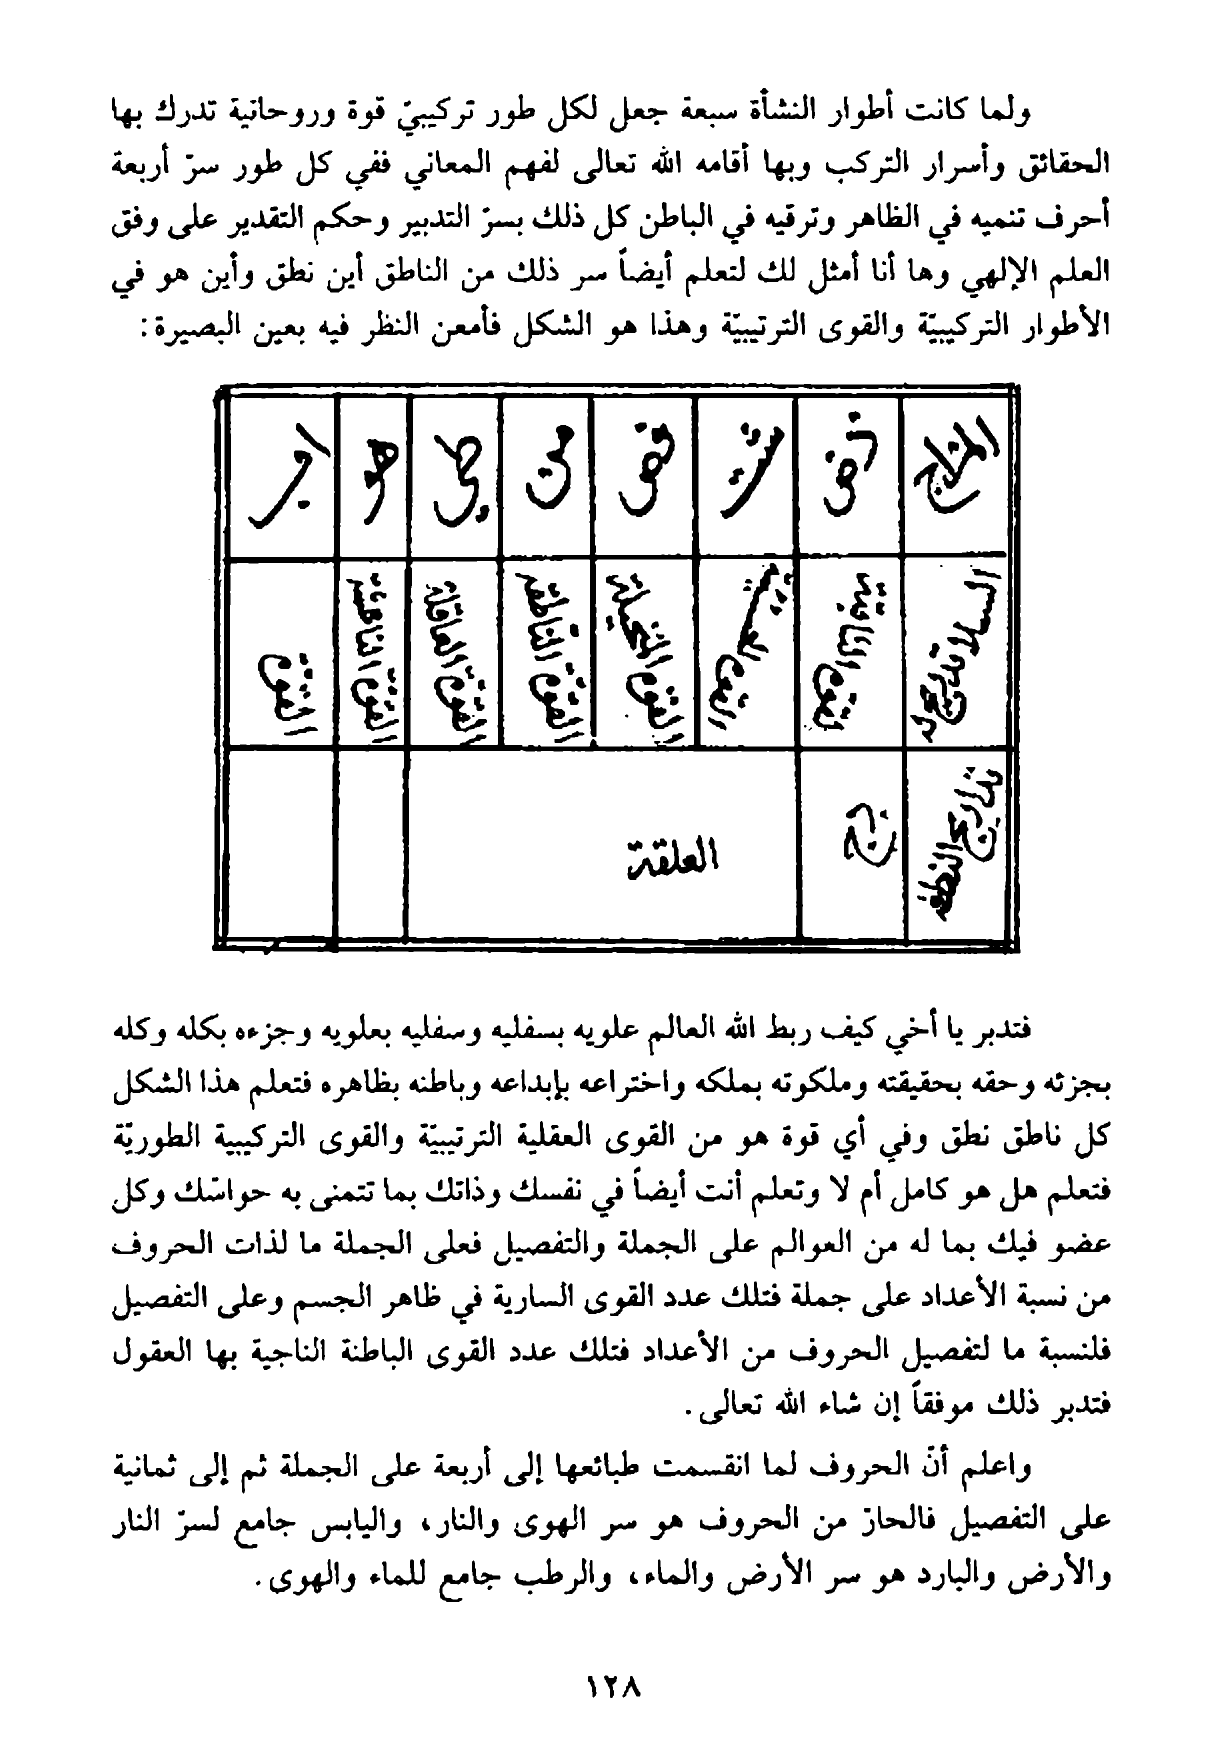 ولما كانت أطوار النشأة سبعة جعل لكل طور تركيبيّ قوة وروحانية تدرك بها
الحقائق وأسرار التركب وبها أقامه الله تعالى لفهم المعاني ففي كل طور سرّ أربعة
أحرف تنميه في الظاهر وترقيه في الباطن كل ذلك بسرّ التدبير وحكم التقدير على وفق
العلم الإلهي وها أنا أمثل لك لتعلم أيضاً سر ذلك من الناطق أين نطق وأين هو في
الأطوار التركيبيّة والقوى الترتيبيّة وهذا هو الشكل فأمعن النظر فيه بعين البصيرة:
شت قص من طي هو
القوة القوة الناطقة القوة العاقلة القوة
العلقة
فتدبر يا أخي كيف ربط الله العالم علويه بسفليه وسفليه بعلويه وجزءه بكله وكله
بجزئه وحقه بحقيقته وملكوته بملكه واختراعه بإبداعه وباطنه بظاهره فتعلم هذا الشكل
كل ناطق نطق وفي أي قوة هو من القوى العقلية الترتيبيّة والقوى التركيبية الطوريّة
فتعلم هل هو كامل أم لا وتعلم أنت أيضاً في نفسك وذاتك بما تتمنى به حواسّك وكل
عضو فيك بما له من العوالم على الجملة والتفصيل فعلى الجملة ما لذات الحروف
من نسبة الأعداد على جملة فتلك عدد القوى السارية في ظاهر الجسم وعلى التفصيل
فلنسبة ما لتفصيل الحروف من الأعداد فتلك عدد القوى الباطنة الناجية بها العقول
فتدبر ذلك موفقاً إن شاء الله تعالى.
واعلم أنّ الحروف لما انقسمت طبائعها إلى أربعة على الجملة ثم إلى ثمانية
على التفصيل فالحارّ من الحروف هو سر الهوى والنار، واليابس جامع لسرّ النار
والأرض والبارد هو سر الأرض والماء، والرطب جامع للماء والهوى.
١٢٨